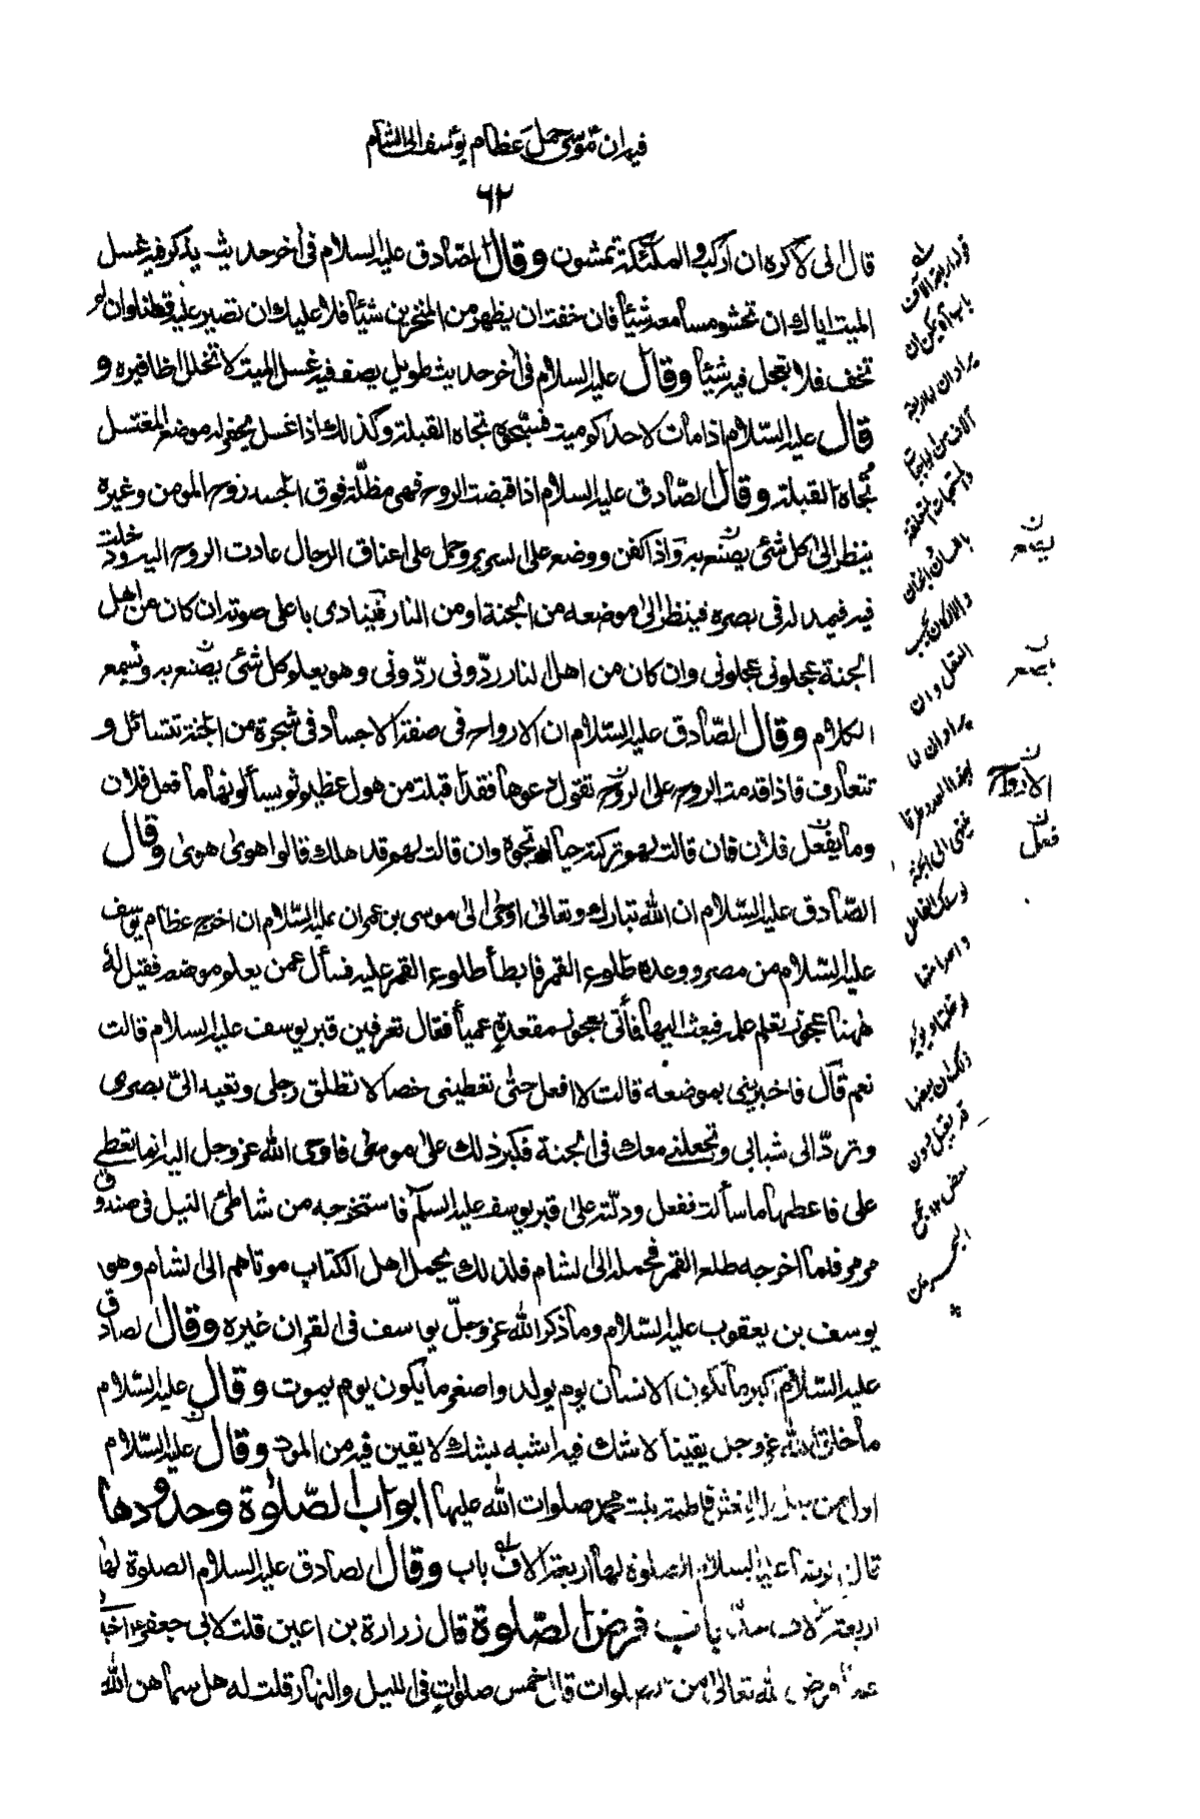 فيه ان موسى حمل عظام يوسف الى الشام
٦٢
قال انى لاكره ان اركب و الملئكة تمشون وقال الصّادق عليه السلام فى أخر حديث يذكر فيه غسل
الميت اياك ان تحشو مسامعه شيئًا فان خفت ان يظهر من المنخرين شيئًا فلا عليك ان تصير عليه قطنا وان لم
تخف فلا تجعل فيه شيئًا وقال عليه السلام فى أخر حديث طويل يصف فيه غسل الميت لا تخلل اظافيره و
قال عليه السّلام اذا مات لاحدكم ميت فسبّجوه تجاه القبلة وكذلك اذا غسل يحفر له موضع المغتسل
تجاه القبلة وقال الصّادق عليه السلام اذا قبضت الروح فهى مظلّة فوق الجسد روح المومن وغيره
ينظر الى كل شئ يصنع به واذا كفن ووضع على السرير وحمل على اعناق الرجال عادت الروح اليه ودخلت
فيه فيمد له فى بصره فينظر الى موضعه من الجنة او من النار فينادى باعلى صوته ان كان من اهل
الجنة عجلونى عجلونى وان كان من اهل النار ردّونى ردّونى وهو يعلم كل شئ يصنع به ويسمع
الكلام وقال الصّادق عليه السّلام ان الارواح فى صفة الاجساد فى شجرة من الجنة تتسائل و
تتعارف فاذا قدمت الروح على الروح تقول دعوها فقد اقبلت من هول عظيم ثم يسألونها ما فعل فلان
وما يفعل فلان فان قالت لهم تركته حيا ارتجوه وان قالت لهم قد هلك قالوا هوى هوى وقال
الصّادق عليه السّلام ان الله تبارك وتعالى اوحى الى موسى بن عمران عليه السّلام ان اخرج عظام يوسف
عليه السّلام من مصر ووعده طلوع القمر فابطأ طلوع القمر عليه فسأل عمن يعلم موضعه فقيل له
ههنا عجوز تعلم علمه فبعث اليها فأتى بعجوز مقعدة عمياء فقال تعرفين قبر يوسف عليه السلام قالت
نعم قال فاخبرينى بموضعه قالت لا افعل حتى تعطينى خصالا تطلق رجلى وتعيد الىّ بصرى
وتردّ الى شبابى وتجعلنى معك فى الجنة فكبر ذلك على موسى فاوحى الله عز وجل اليه انما تعطى
على فاعطها ما سألت ففعل ودلّته على قبر يوسف عليه السلم فاستخرجه من شاطئ النيل فى صندوق
مرمر فلما اخرجه طلع القمر فحمله الى الشام فلذلك يحمل اهل الكتاب موتاهم الى الشام وهو
يوسف بن يعقوب عليه السّلام وما ذكر الله عز وجلّ يوسف فى القران غيره وقال الصادق
عليه السّلام اكبر ما يكون الانسان يوم يولد واصغر ما يكون يوم يموت وقال عليه السّلام
ما خلق الله عز وجل يقينا لا شك فيه اشبه بشك لا يقين فيه من الموت وقال عليه السّلام
اول من جعل له النعش فاطمة بنت محمد صلوات الله عليها ابواب الصّلوة وحدودها
قال الرضا عليه السلام الصلوة لها اربعة الاف باب وقال الصادق عليه السلام الصلوة لها
اربعة الاف حد باب فرض الصّلوة قال زرارة بن اعين قلت لابى جعفر ع اخبرنى
عما فرض الله تعالى من الصلوات قال خمس صلوات فى الليل والنهار قلت له هل سماهن الله
قوله اربعة الاف
باب او يمكن ان
يراد ان باربعة
الاف من الواجبات
والمستحبات المتعلقة
باللسان والجنان
والاركان
يصنع
يصنع
الارواح
فعل